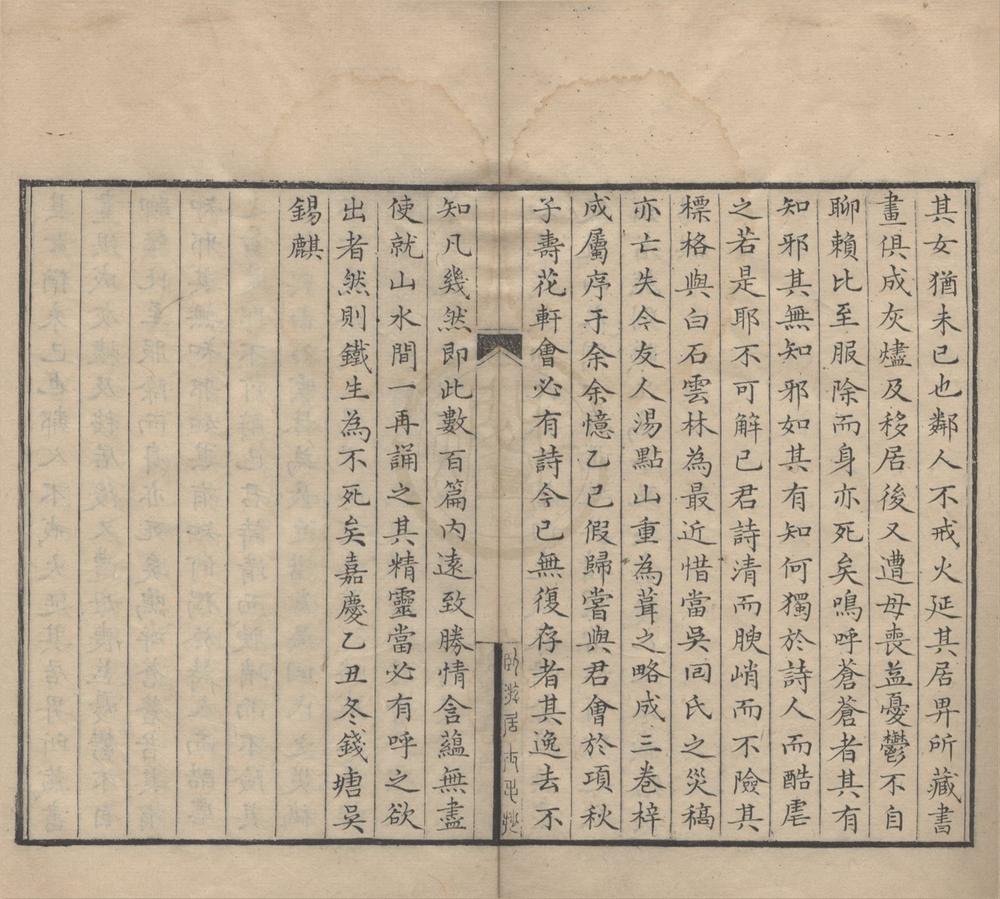 其女猶未已也鄰人不戒火延其居畀所藏書
畫俱成灰燼及移居後又遭母喪益憂鬱不自
聊賴比至服除而身亦死矣嗚呼蒼蒼者其有
知邪其無知邪如其有知何獨於詩人而酷虐
之若是耶不可解已君詩清而腴峭而不險其
標格與白石雲林為最近惜當吳回氏之災稿
亦亡失今友人湯點山重為葺之略成三卷梓
成屬序于余余憶乙巳假歸嘗與君會於項秋
子壽花軒會必有詩今已無復存者其逸去不
知凡幾然即此數百篇內遠致勝情含蘊無盡
使就山水間一再誦之其精靈當必有呼之欲
出者然則鐵生為不死矣嘉慶乙丑冬錢塘吳
錫麒